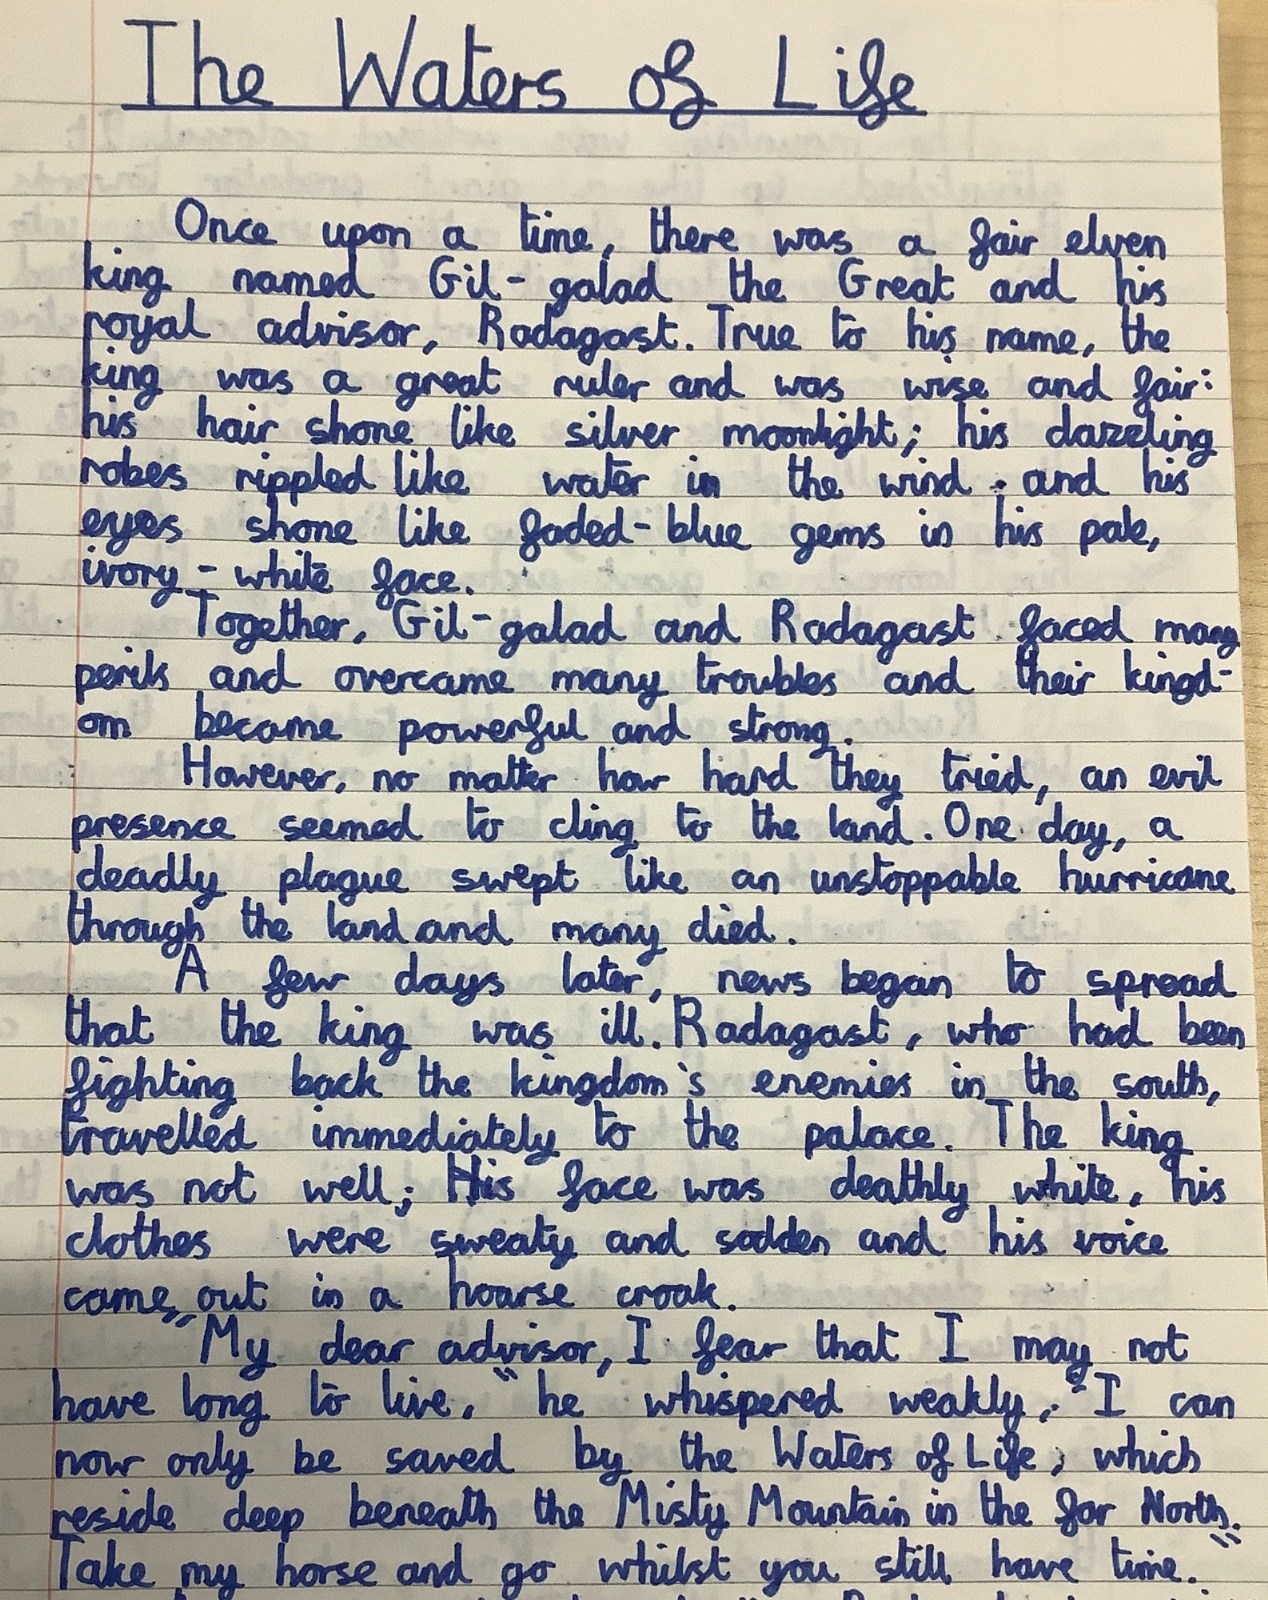 The Waters of Life
Once upon a time, there was a fair elven
king named Gil-galad the Great and his
royal advisor, Radagast. True to his name, the
king was a great ruler and was wise and fair:
his hair shone like silver moonlight; his dazzling
robes rippled like water in the wind and his
eyes shone like faded-blue gems in his pale,
ivory-white face.
Together, Gil-galad and Radagast faced many
perils and overcame many troubles and their kingd-
om became powerful and strong.
However, no matter how hard they tried, an evil
presence seemed to cling to the land. One day, a
deadly plague swept like an unstoppable hurricane
through the land and many died.
A few days later, news began to spread
that the king was ill. Radagast, who had been
fighting back the kingdom's enemies in the south,
travelled immediately to the palace. The king
was not well; His face was deathly white, his
clothes were sweaty and sodden and his voice
came out in a hoarse croak.
"My dear advisor, I fear that I may not
have long to live," he whispered weakly, "I can
now only be saved by the Waters of Life, which
reside deep beneath the Misty Mountain in the far North.
Take my horse and go whilst you still have time."